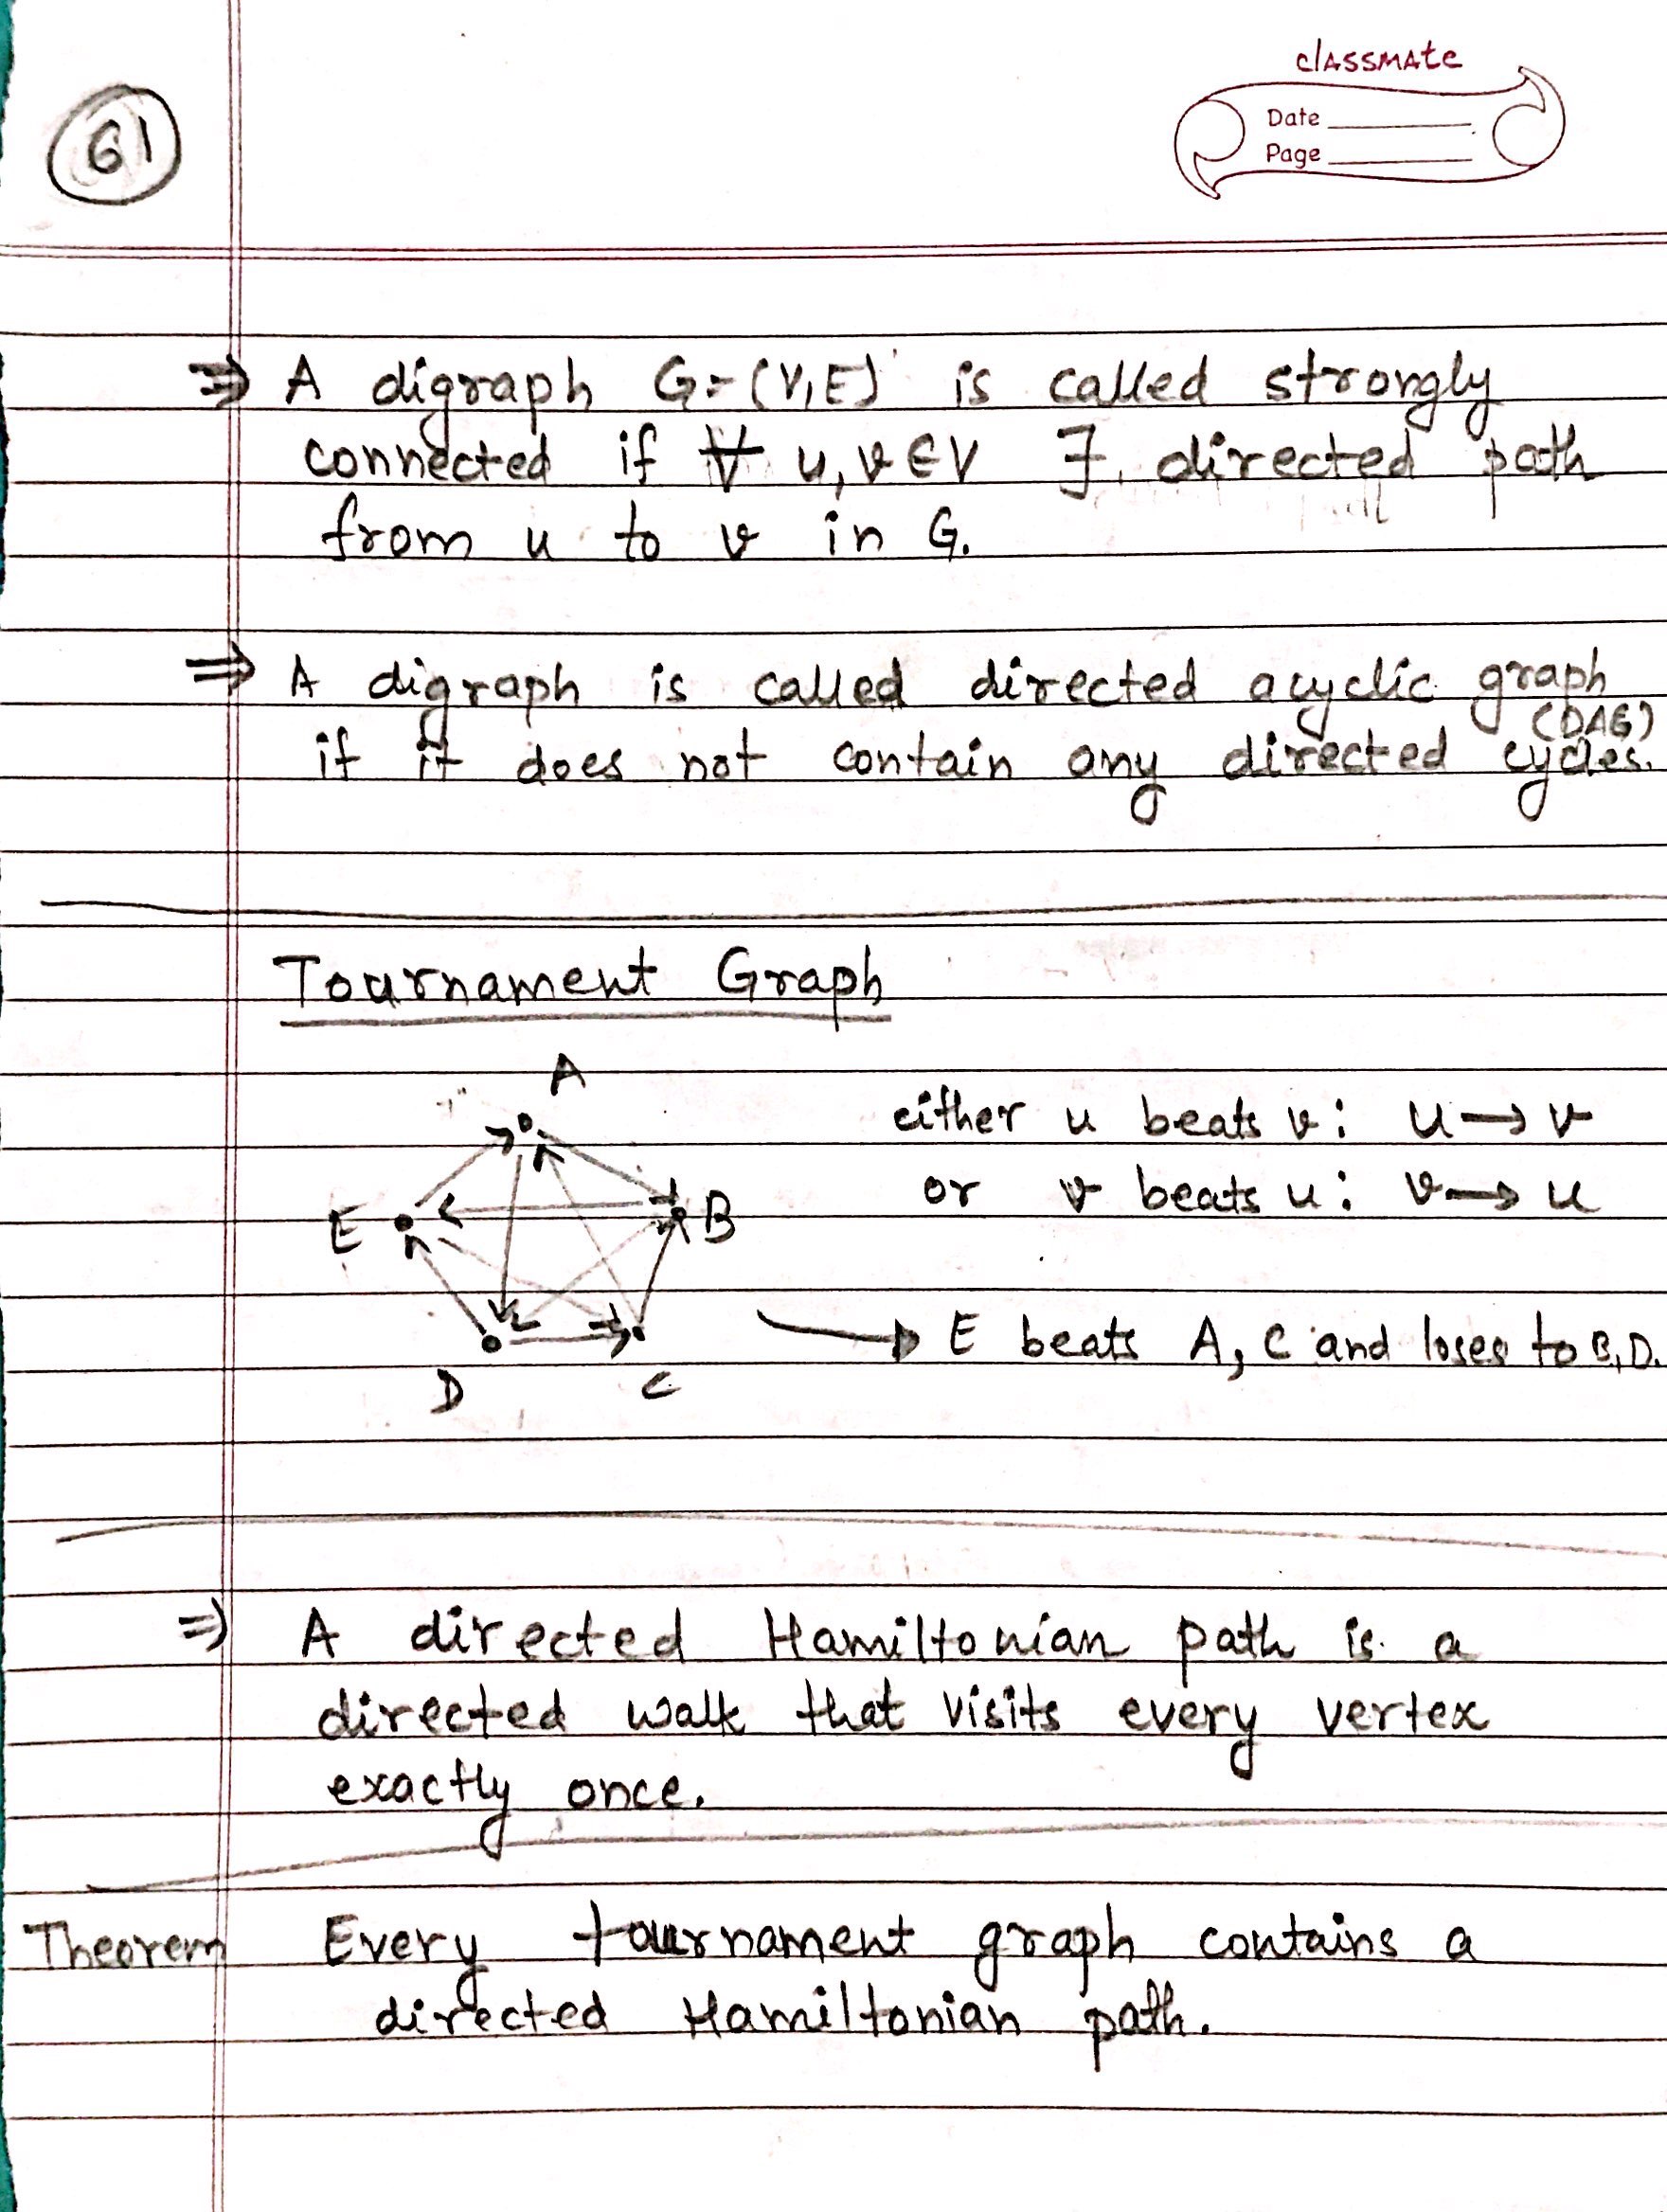 classmate
Date
Page
61
⇒ A digraph G=(V,E) is called strongly
connected if ∀ u,v ∈ V ∃ directed path
from u to v in G.
⇒ A digraph is called directed acyclic graph
(DAG)
if it does not contain any directed cycles.
Tournament Graph
A
either u beats v: u → v
or v beats u: v → u
E
B
→ E beats A, C and loses to B,D.
D
C
⇒ A directed Hamiltonian path is a
directed walk that visits every vertex
exactly once.
Theorem Every tournament graph contains a
directed Hamiltonian path.